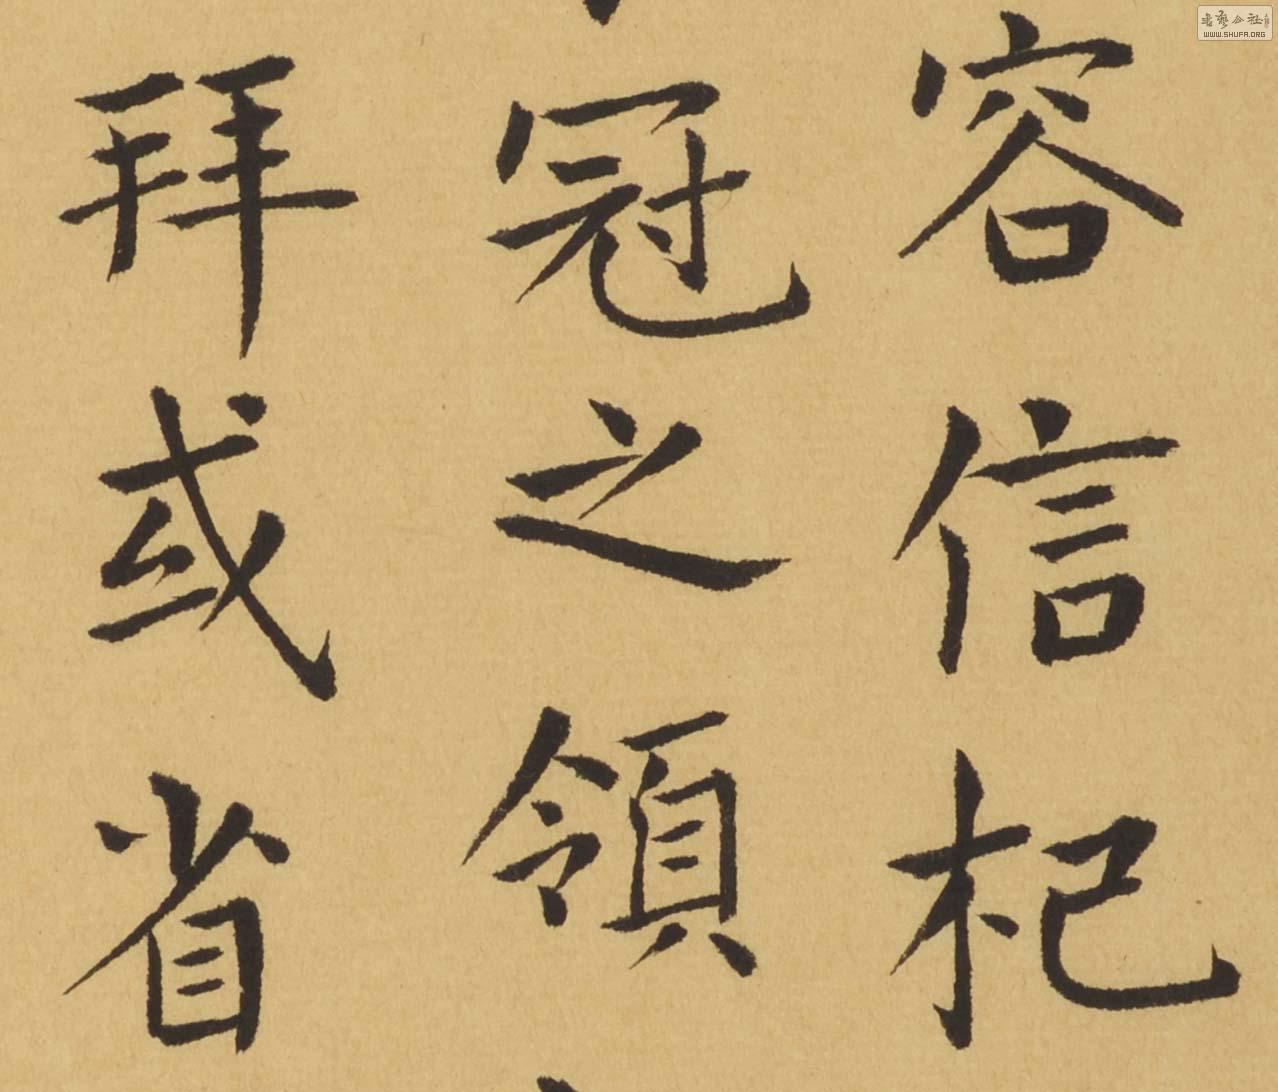 容信杞
冠之領
拜或省
书艺公社
WWW.SHUFA.ORG